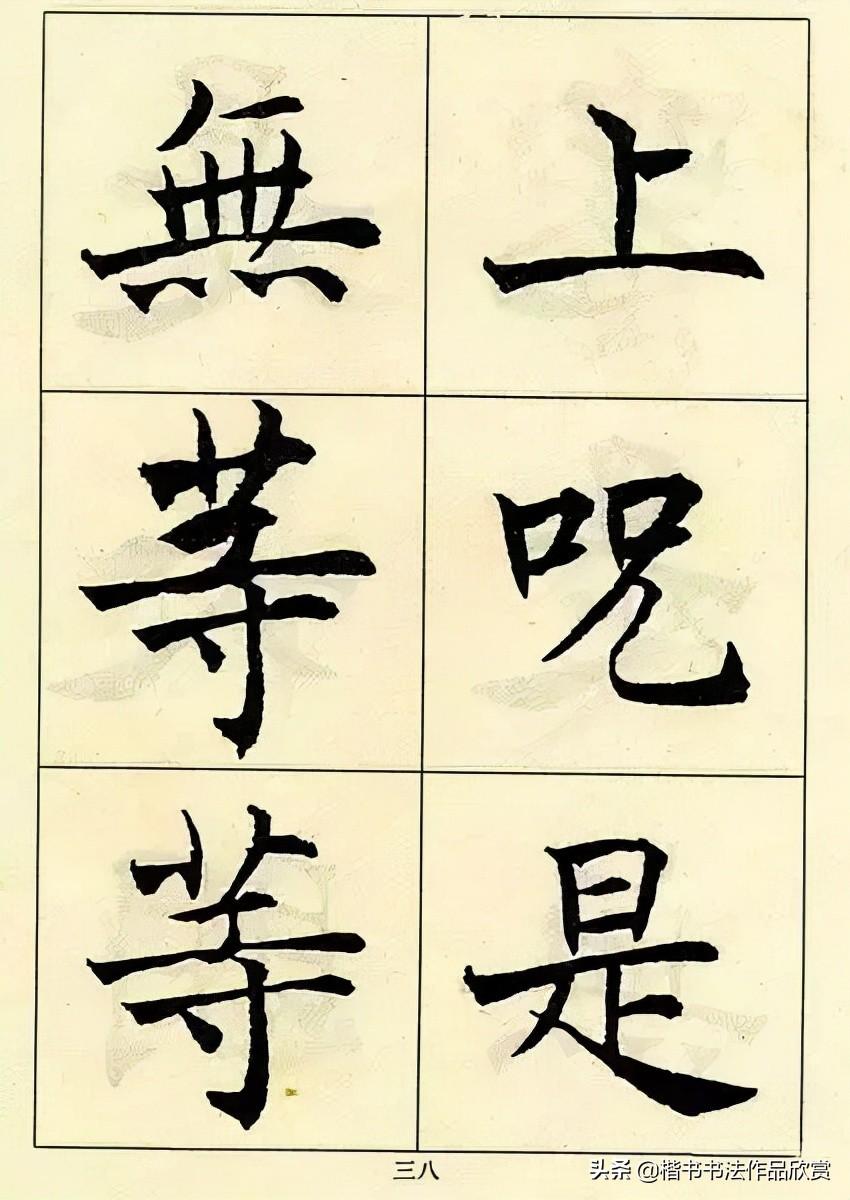 上咒是
無等等
三八
头条 @楷书书法作品欣赏